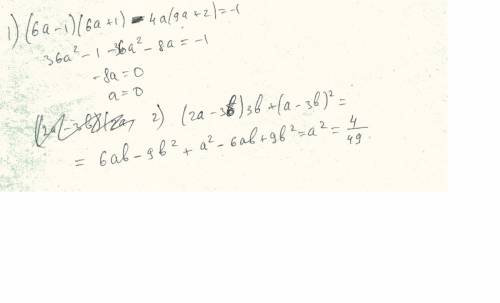 1) (6a-1)(6a+1) - 4a(9a+2)=-1
36a² - 1 - 36a² - 8a = -1
-8a = 0
a = 0
2) (2a-3b)3b + (a-3b)² =
= 6ab - 9b² + a² - 6ab + 9b² = a² = 4/49